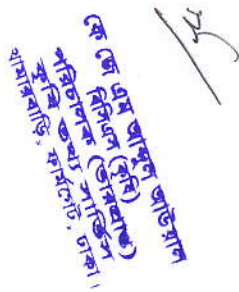 কে জে এম আব্দুল আউয়াল
বিসিএস (কৃষি)
পরিচালক (ভারপ্রাপ্ত)
কৃষি তথ্য সার্ভিস
খামারবাড়ি, ফার্মগেট, ঢাকা।